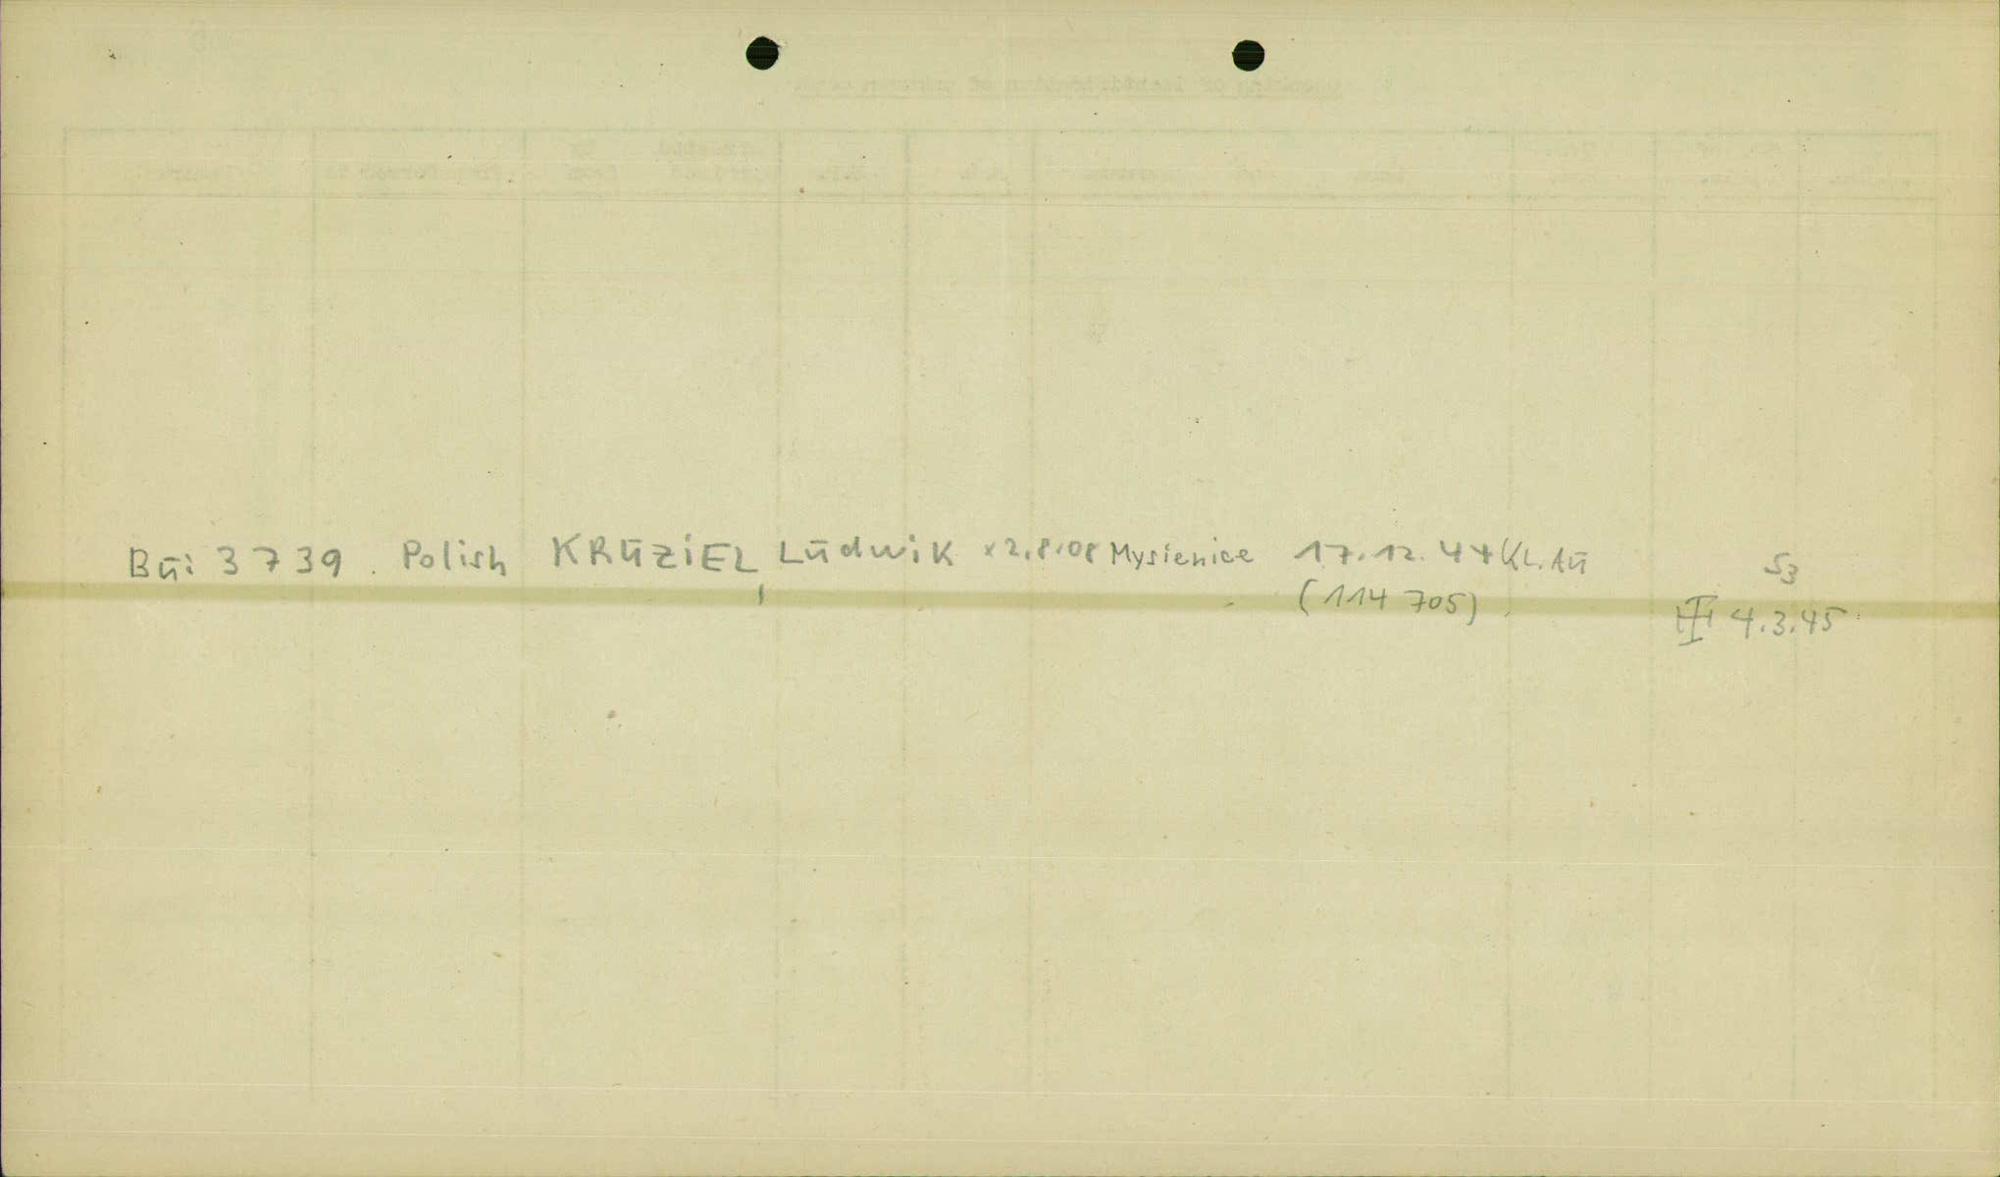 Bui 3739. Polish KRUZIEL, Ludwik * 2.8.08 Mysienice 17.12.44 KL. Au S3
(114 705) 4.3.45